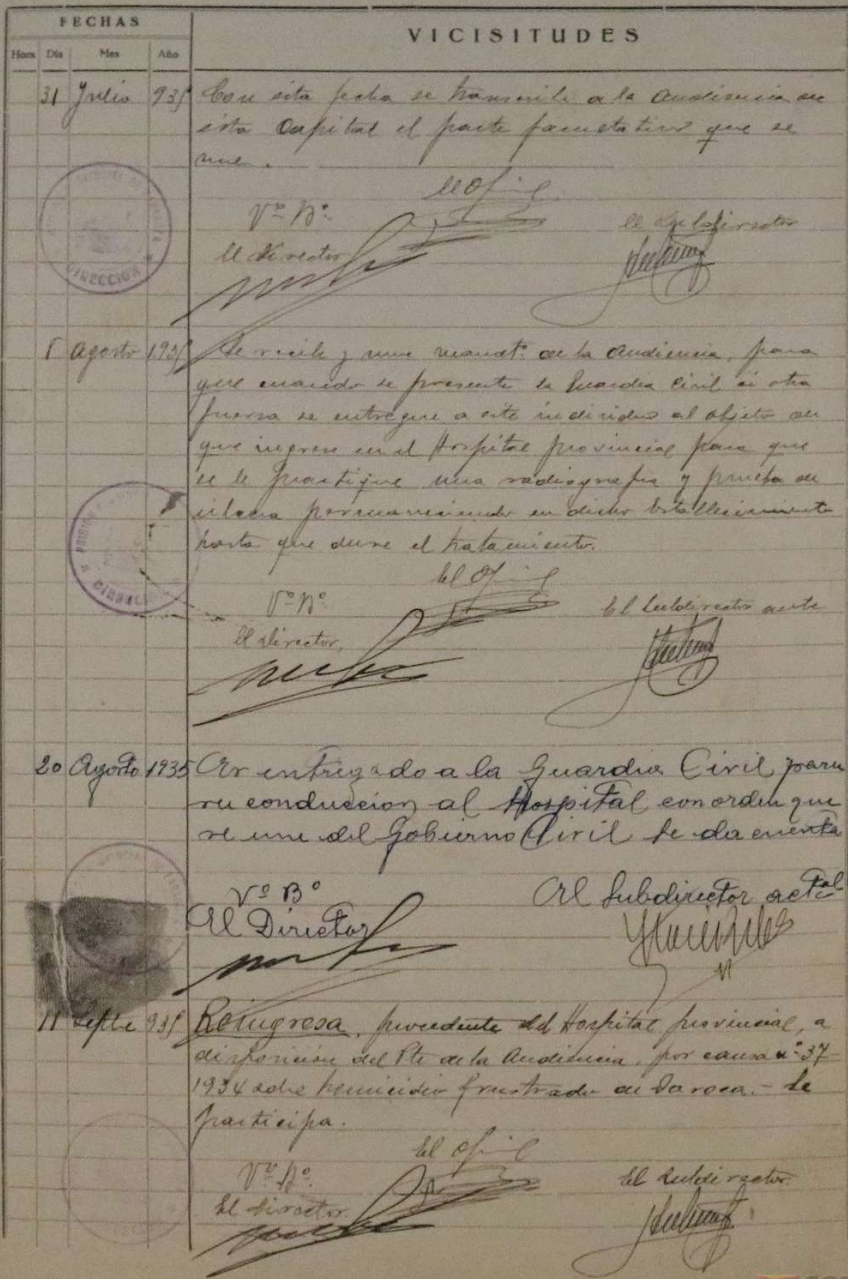 FECHAS
VICISITUDES
Hora Día Mes Año
31 Julio 935 Con esta fecha se transcribe a la Audiencia de
esta Capital el parte facultativo que se
une.
El Ofi
Vº Bº El Subdirector
El Director
DIRECCION
Agosto 1935 Se recibe y une mandtº de la Audiencia, para
que cuando se presente la Guardia Civil u otra
fuerza se entregue a este individuo al objeto de
que ingrese en el Hospital provincial para que
se le practique una radiografia y prueba de
permaneciendo en dicho Establecimiento
hasta que dure el tratamiento.
El Ofi
Vº Bº El Subdirector accte
El Director,
PRISION
20 Agosto 1935 Es entregado a la Guardia Civil para
su conduccion al Hospital con orden que
se une del Gobierno Civil Se da cuenta
Vº Bº El Subdirector actal
El Director
11 Septbe 935 Reingresa, procedente del Hospital provincial, a
disposición del Pte de la Audiencia, por causa nº 37-
1934 sobre homicidio frustrado de Daroca.- Se
participa.
El Ofi
Vº Bº El Subdirector
El Director